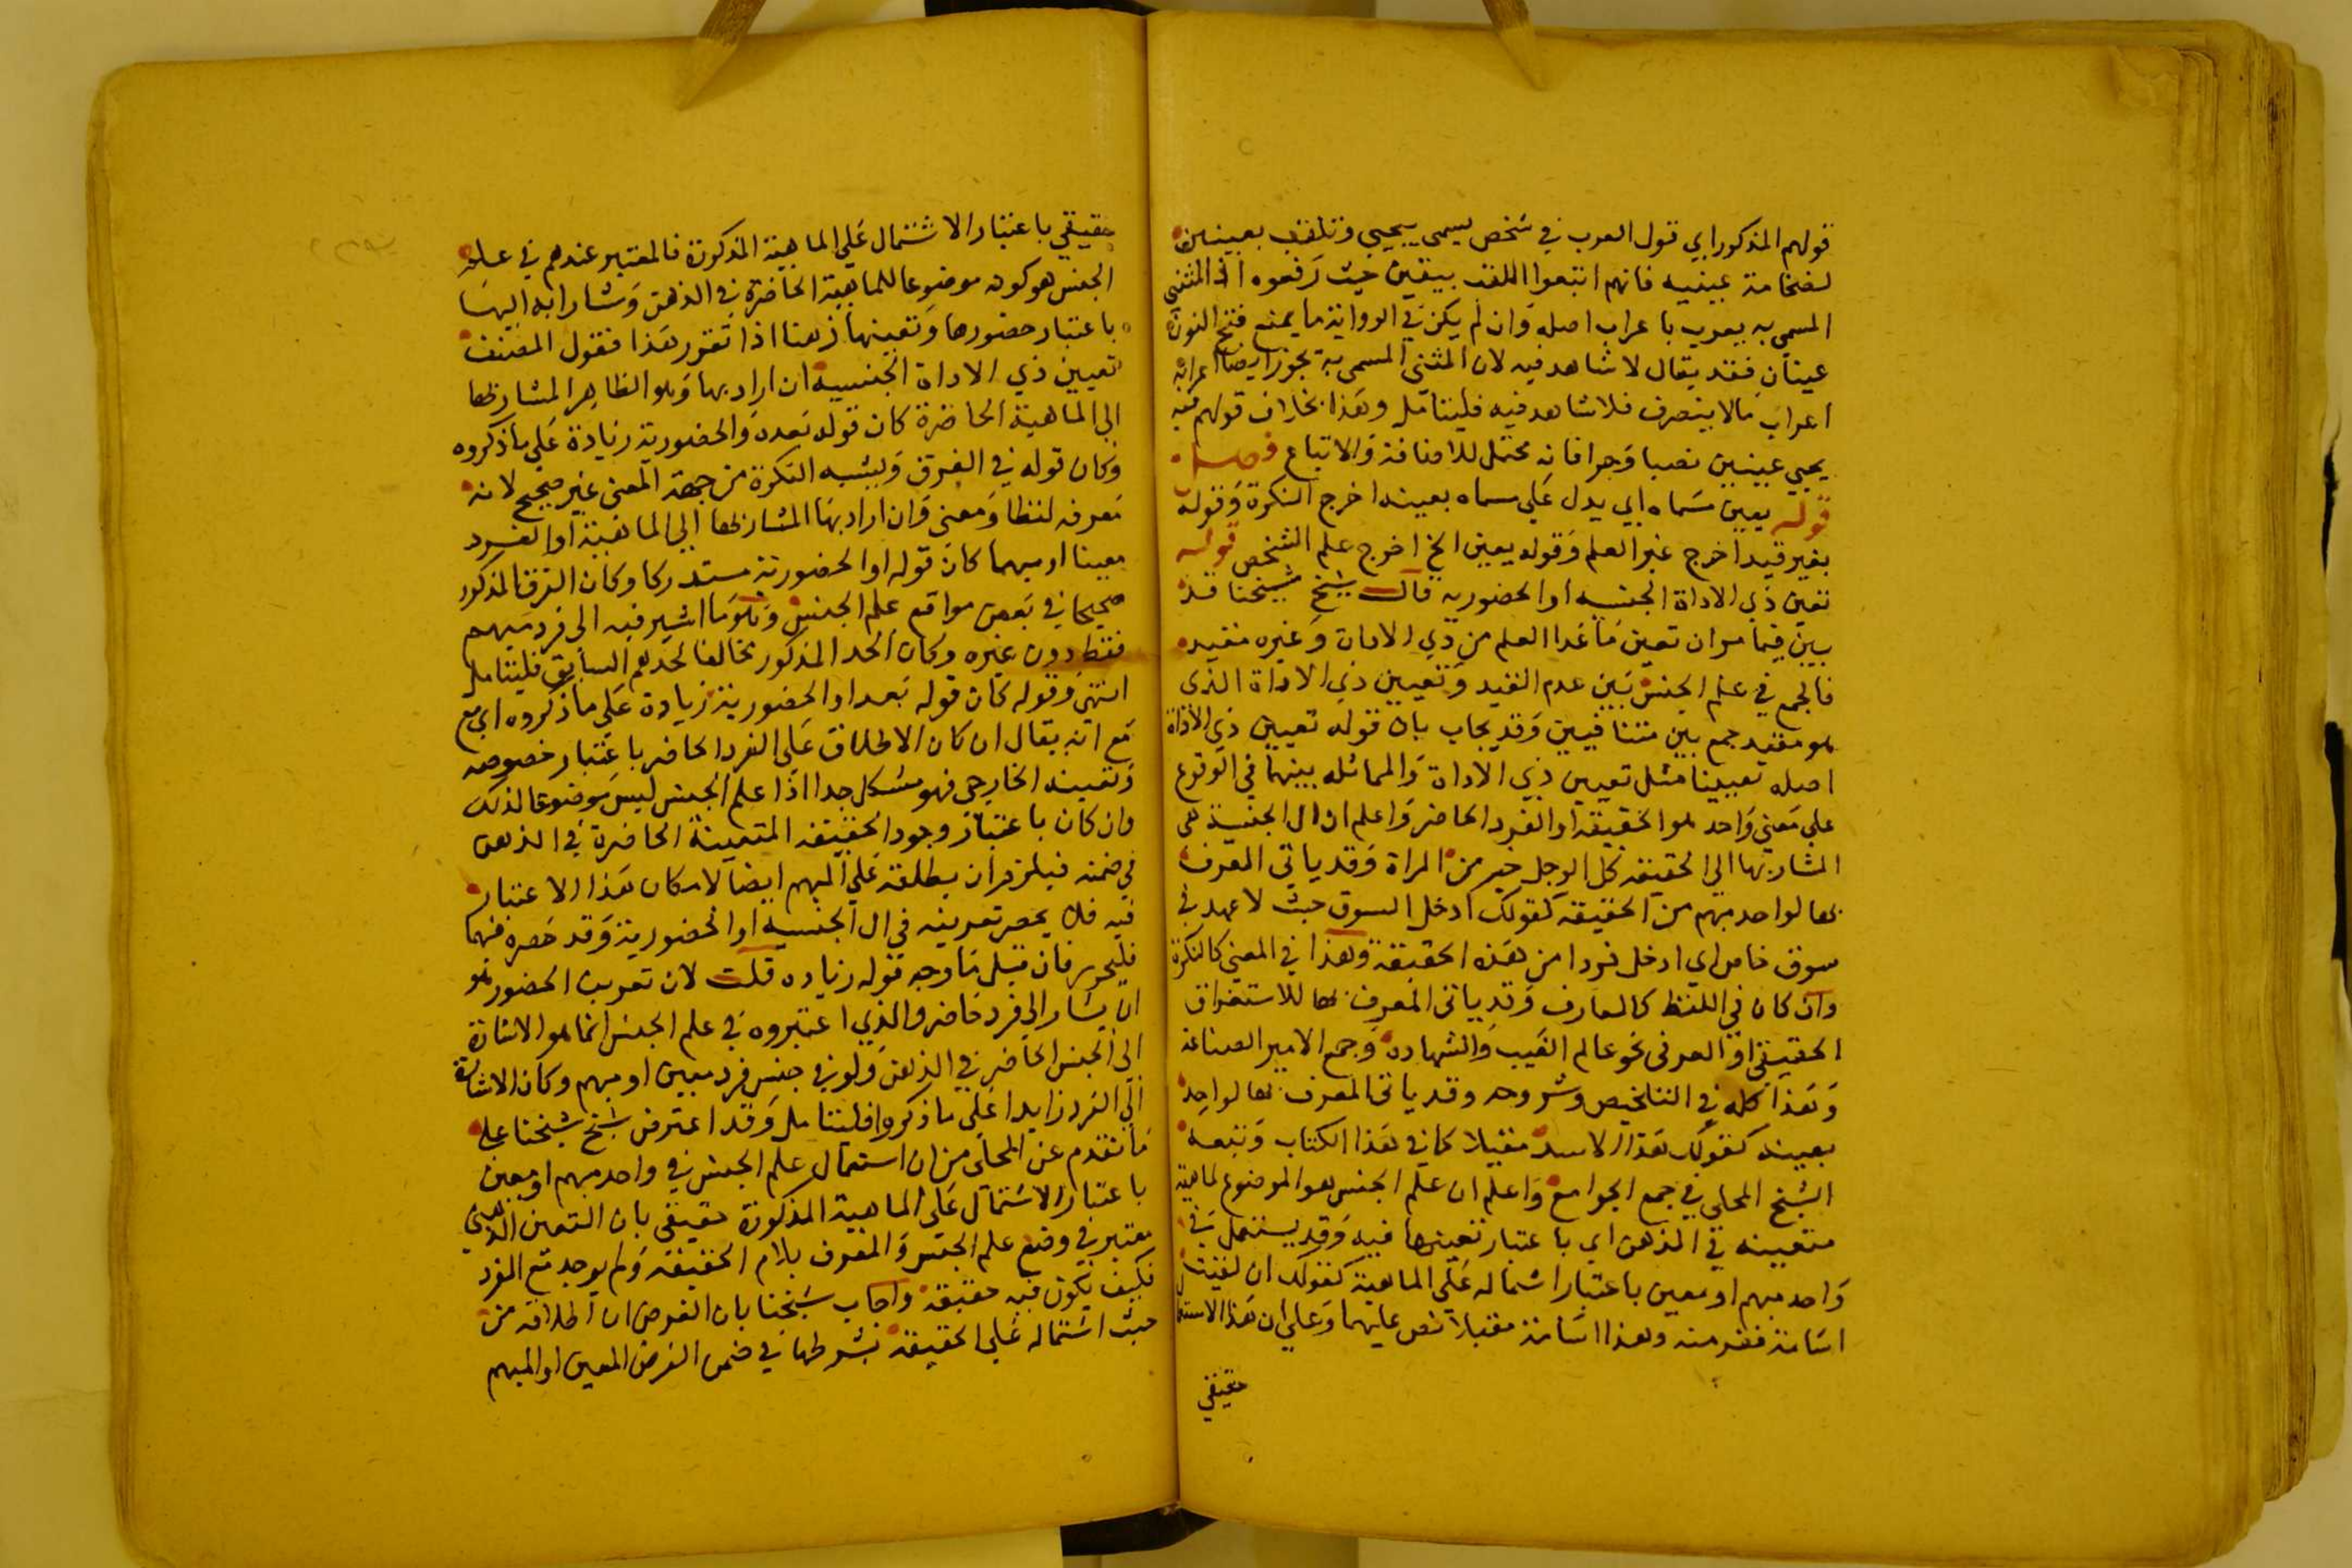 قولهم المذكور اي قول العرب في شخص يسمى بيحيي وتلقب بعينين
لضخامة عينيه فانهم اتبعوا اللقب بيقين حيث رفعوه اذ المثنى
المسمى به يعرب باعراب اصله وان لم يكن في الرواية ما يمنع فتح النون
عينان فقد يقال لا شاهد فيه لان المثنى المسمى به يجوز ايضا اعرابه
اعراب مالا ينصرف فلا شاهد فيه فليتامل وهذا بخلاف قولهم فيه
يحيي عينين نصبا وجرا فانه محتمل للاضافة والاتباع فصل
قوله يعين مسماه اي يدل على مسماه بعينه اخرج النكرة وقوله
بغير قيد اخرج غير العلم وقوله يعين الخ اخرج علم الشخص قوله
تعين ذي الاداة الجنسية او الحضورية قال شيخ شيخنا قد
بين فيما مر ان تعين ما عدا العلم من ذي الاداة وغيره مفيد
فالجمع في علم الجنس بين عدم القيد وتعيين ذي الاداة الذى
هو مقيد جمع بين متنافيين وقد يجاب بان قوله تعيين ذي الاداة
اصله تعيينا مثل تعيين ذي الاداة والمماثله بينهما في الوقوع
على معنى واحد هو الحقيقة او الفرد الحاضر واعلم ان ال الجنسية هي
المشار بها الى الحقيقه كل الرجل خير من المراة وقد ياتي المعرف
بها لواحد مبهم من الحقيقة كقولك ادخل السوق حيث لا عهد في
سوق خاص اي ادخل فردا من هذه الحقيقة وهذا في المعنى كالنكرة
وان كان في اللفظ كالمعارف وقد ياتى المعرف بها للاستغراق
الحقيقى او العرفى نحو عالم الغيب والشهادة وجمع الامير الصاغة
وهذا كله في التلخيص وشروحه وقد ياتى المعرف بها لواحد
بعينه كقولك هذا الاسد مقبلا كما في هذا الكتاب وتبعه
الشيخ المحلى في جمع الجوامع واعلم ان علم الجنس هو الموضوع لماهية
متعيينه في الذهن اي باعتبار تعينها فيه وقد يستعمل في
واحد مبهم او معين باعتبار اشتماله على الماهية كقولك ان لقيت
اسامة ففر منه وهذا اسامة مقبلا نص عليهما وعلى ان هذا الاستعما
حقيقي
حقيقي باعتبار الاشتمال على الماهية المذكورة فالمعتبر عندهم في علم
الجنس هو كونه موضوعا للماهية الحاضرة في الذهن ومشارا به اليها
باعتبار حضورها وتعينها ذهنا اذا تقرر هذا فقول المصنف
تعيين ذي الاداة الجنسية ان اراد بها وهو الظاهر المشار بها
الى الماهية الحاضرة كان قوله بعده والحضورية زيادة على ما ذكروه
وكان قوله في الفرق ويشبه النكرة من جهة المعنى غير صحيح لانه
معرفه لفظا ومعنى وان اراد بها المشار بها الي الماهية او الفرد
معينا او مبهما كان قوله او الحضورية مستدركا وكان الفرق المذكور
صحيحا في بعض مواقع علم الجنس وهو ما اشير فيه الى فرد مبهم
فقط دون غيره وكان الحد المذكور مخالفا لحدهم السابق فليتامل
انتهى وقوله كان قوله بعد او الحضورية زيادة على ما ذكروه اي مع
مع انه يقال ان كان الاطلاق على الفرد الحاضر باعتبار خصوصه
وتعينه الخارجى فهو مشكل جدا اذا علم الجنس ليس موضوعا لذلك
وان كان باعتبار وجود الحقيقة المتعينة الحاضرة في الذهن
في ضمنه فيلزم ان يطلقه على المبهم ايضا لامكان هذا الاعتبار
فيه فلا يحصر تعريفه في ال الجنسية او الحضورية وقد حصره فيهما
فليحرر فان قيل ما وجه قوله زياده قلت لان تعريف الحضور هو
ان يشار الى فرد حاضر والذي اعتبروه في علم الجنس انما هو الاشارة
الى الجنس الحاضر في الذهن ولو في جنس فرد معين او مبهم وكان الاشارة
الي الفرد زايدا على ما ذكروا فليتامل وقد اعترض شيخ شيخنا على
ما تقدم عن المحلى من ان استعمال علم الجنس في واحد مبهم او معين
باعتبار الاشتمال على الماهية المذكورة حقيقى بان التعين الذهني
يعتبر في وضع علم الجنس والمعرف بلام الحقيقة ولم يوجد مع الفرد
فكيف يكون فيه حقيقة واجاب شيخنا بان الفرض ان اطلاقه من
حيث اشتماله على الحقيقة بشرطها في ضمن الفرض المعين او المبهم